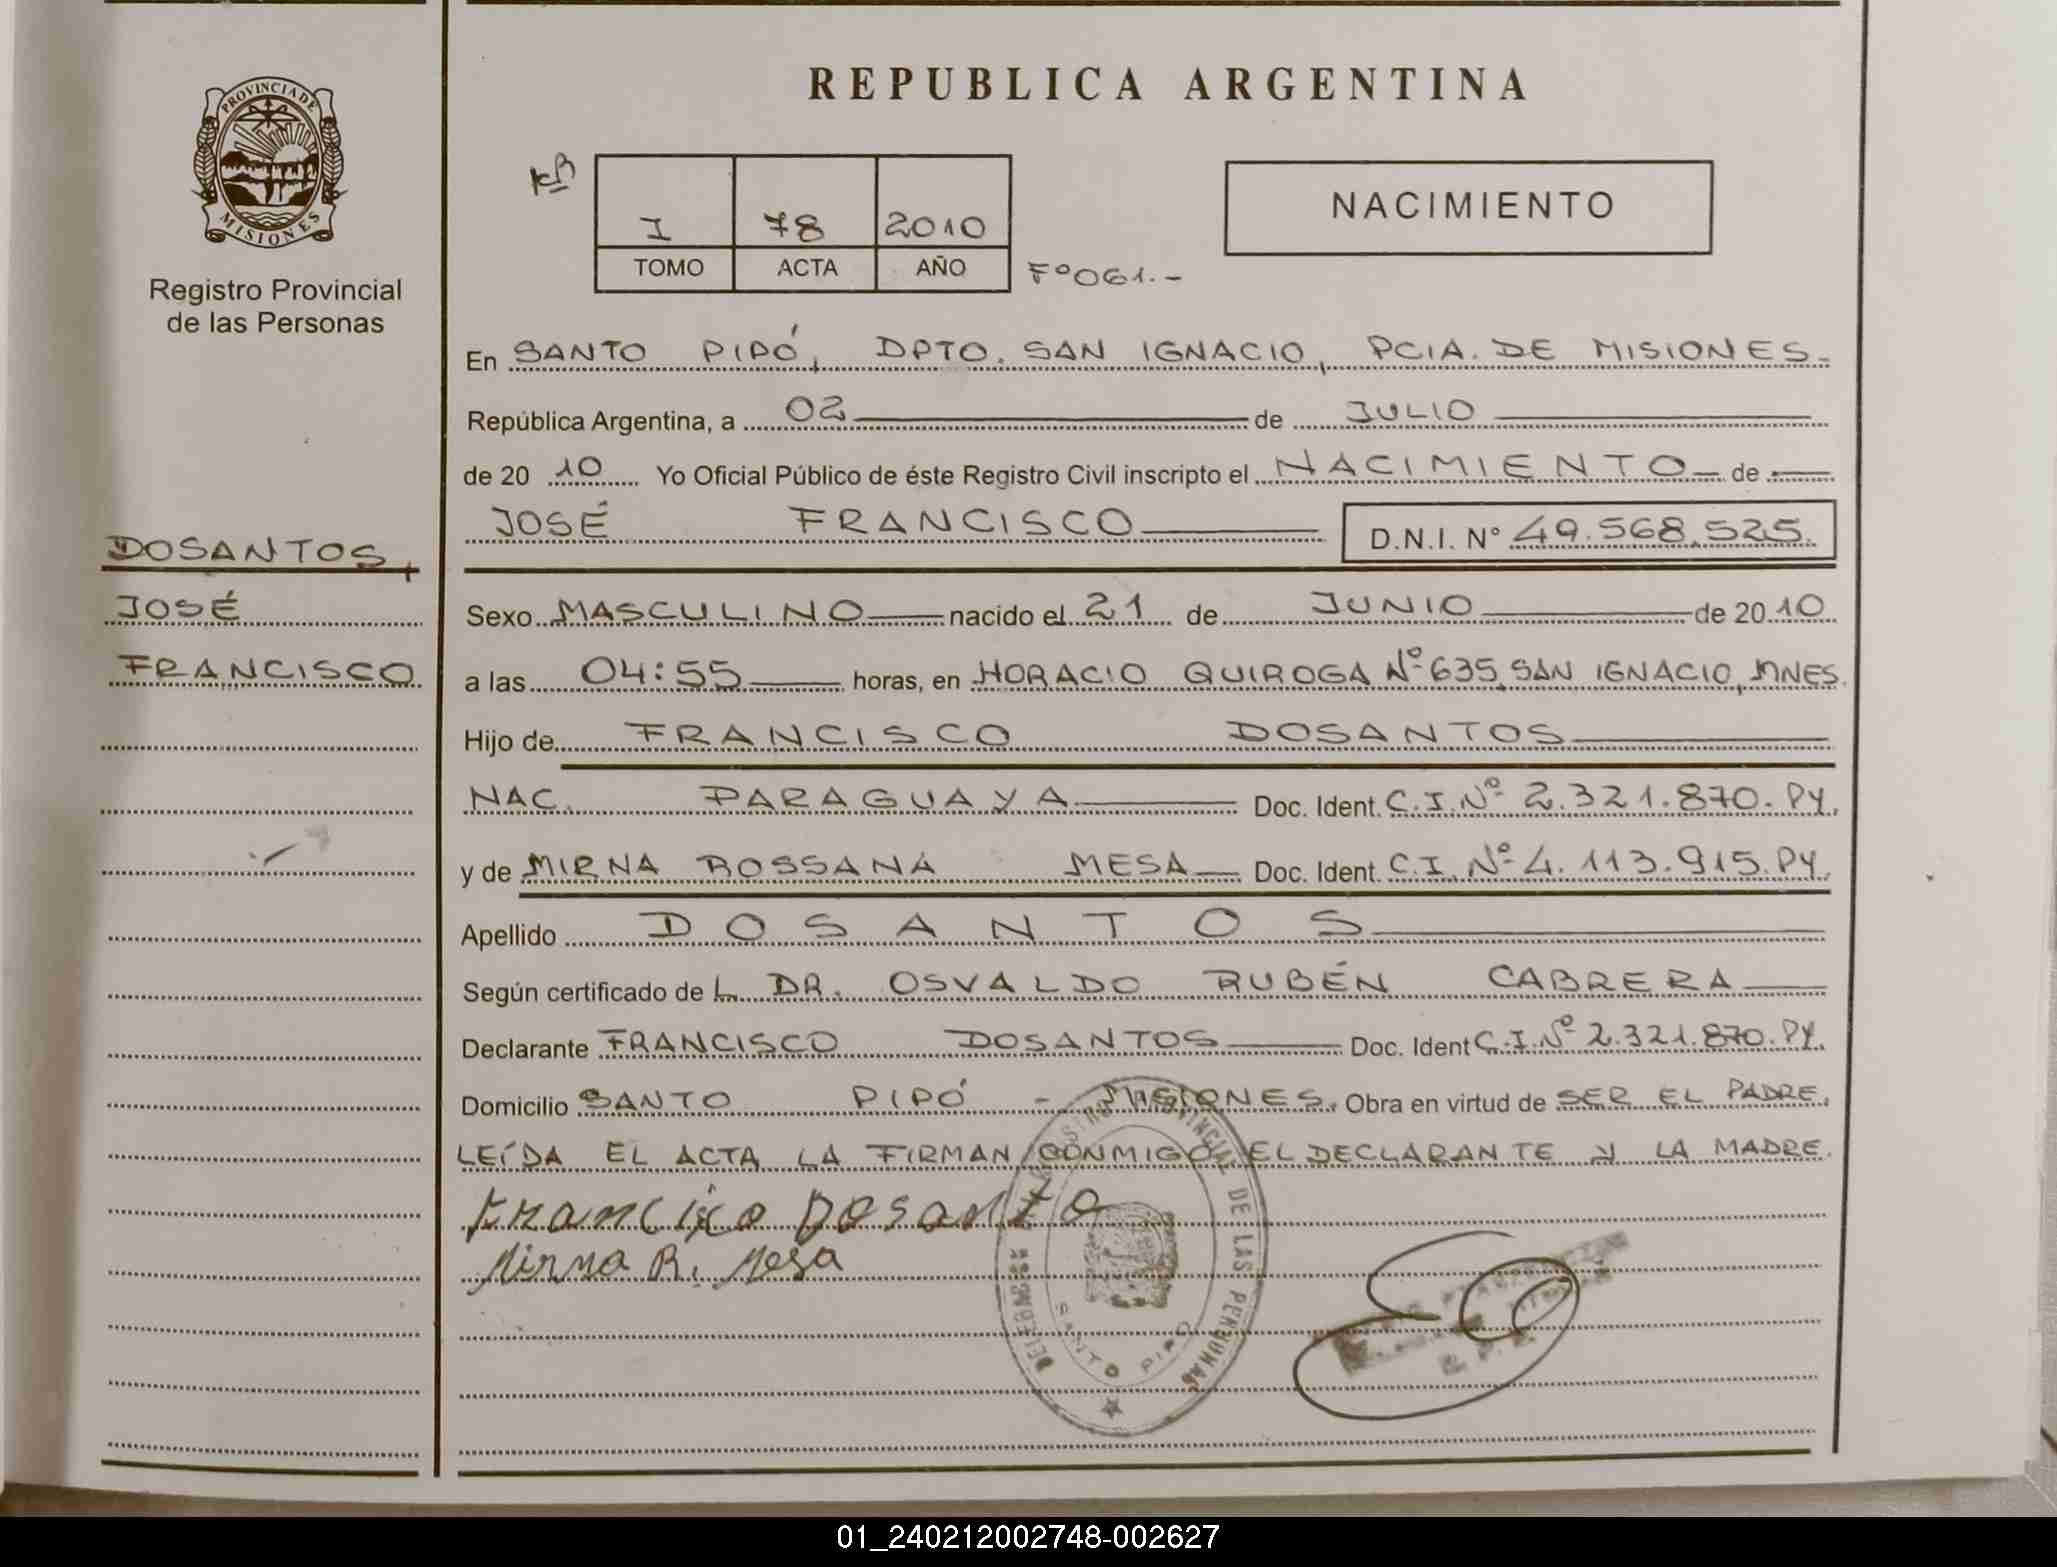 REPUBLICA ARGENTINA
PROVINCIA DE MISIONES
Registro Provincial
de las Personas
I 78 2010
TOMO ACTA AÑO
Fº 061.-
NACIMIENTO
En SANTO PIPÓ, DPTO. SAN IGNACIO, PCIA. DE MISIONES.
República Argentina, a 02 de JULIO
de 20 10 Yo Oficial Público de éste Registro Civil inscripto el NACIMIENTO de
JOSÉ FRANCISCO D.N.I. Nº 49.568.525.
DOSANTOS,
JOSÉ
FRANCISCO
Sexo MASCULINO nacido el 21 de JUNIO de 20 10
a las 04:55 horas, en HORACIO QUIROGA Nº 635, SAN IGNACIO, MNES.
Hijo de FRANCISCO DOSANTOS
NAC. PARAGUAYA Doc. Ident. C.I. Nº 2.321.870. PY.
y de MIRNA ROSSANA MESA Doc. Ident. C.I. Nº 4.113.915. PY.
Apellido DOSANTOS
Según certificado de L DR. OSVALDO RUBÉN CABRERA
Declarante FRANCISCO DOSANTOS Doc. Ident C.I. Nº 2.321.870. PY.
Domicilio SANTO PIPÓ - MISIONES. Obra en virtud de SER EL PADRE.
LEÍDA EL ACTA LA FIRMAN CONMIGO EL DECLARANTE Y LA MADRE.
Francisco Dosanto
Mirna R. Mesa
DE LAS PERSONAS
SANTO PIPÓ
01_240212002748-002627